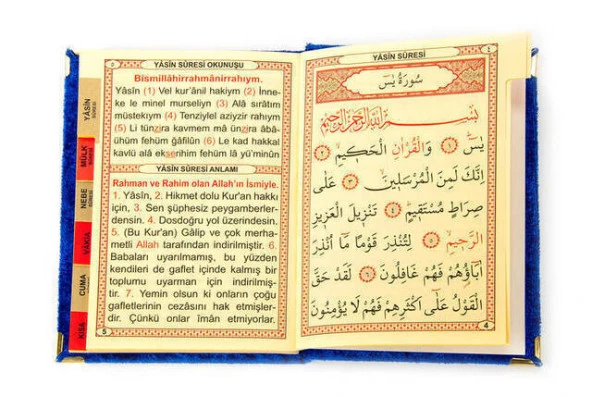 YÂSÎN SÛRESİ OKUNUŞU
Bismillâhirrahmânirrahıym.
Yâsîn (1) Vel kur'ânil hakiym (2) İnne-
ke le minel murseliyn (3) Alâ sırâtım
müstekıym (4) Tenziylel aziyzir rahıym
(5) Li tünzira kavmem mâ ünzira âbâ-
ühüm fehüm ğâfilûn (6) Le kad hakkal
kavlü alâ ekserihim fehüm lâ yü'minûn
YÂSÎN SÛRESİ ANLAMI
Rahman ve Rahim olan Allah'ın İsmiyle.
1. Yâsîn, 2. Hikmet dolu Kur'an hakkı
için, 3. Sen şüphesiz peygamberler-
densin. 4. Dosdoğru yol üzerindesin.
5. (Bu Kur'an) Gâlip ve çok merha-
metli Allah tarafından indirilmiştir. 6.
Babaları uyarılmamış, bu yüzden
kendileri de gaflet içinde kalmış bir
toplumu uyarman için indirilmiş-
tir. 7. Yemin olsun ki onların çoğu
gafletlerinin cezasını hak etmişler-
dir. Çünkü onlar îmân etmiyorlar.
5
YÂSÎN SÛRESİ
MÜLK SÛRESİ
NEBE SÛRESİ
VÂKIA
CUMA
KISA
YÂSÎN SÛRESİ
٤
سُورَةُ يٰسٓ
بِسْمِ اللّٰهِ الرَّحْمٰنِ الرَّحِيمِ
يٰسٓ ﴿١﴾ وَالْقُرْاٰنِ الْحَكِيمِ ﴿٢﴾
اِنَّكَ لَمِنَ الْمُرْسَلِينَ ﴿٣﴾ عَلٰى
صِرَاطٍ مُسْتَقِيمٍ ﴿٤﴾ تَنْزِيلَ الْعَزِيزِ
الرَّحِيمِ ﴿٥﴾ لِتُنْذِرَ قَوْمًا مَٓا اُنْذِرَ
اٰبَٓاؤُهُمْ فَهُمْ غَافِلُونَ ﴿٦﴾ لَقَدْ حَقَّ
الْقَوْلُ عَلٰٓى اَكْثَرِهِمْ فَهُمْ لَا يُؤْمِنُونَ
4